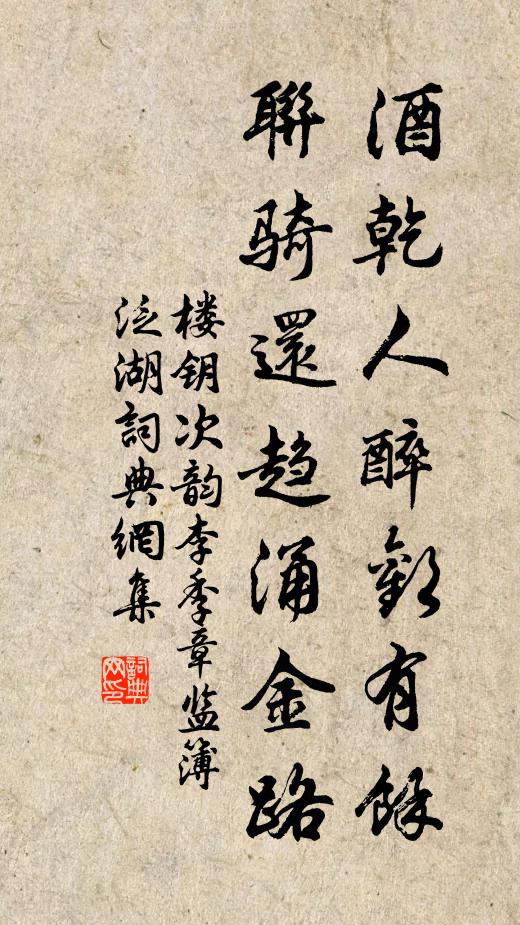 酒乾人醉歡有餘
聯騎還趨涌金路
楼钥次韵李季章监簿
泛湖詞典網集
詞典网印